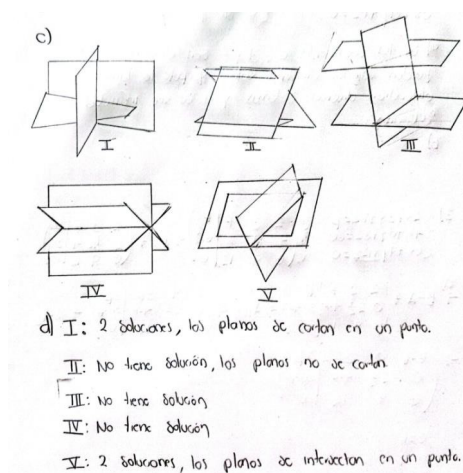 c)
I
II
III
IV
V
d) I: 2 soluciones, los planos se cortan en un punto.
II: No tiene solución, los planos no se cortan
III: No tiene solución
IV: No tiene solución
V: 2 soluciones, los planos se intersectan en un punto.